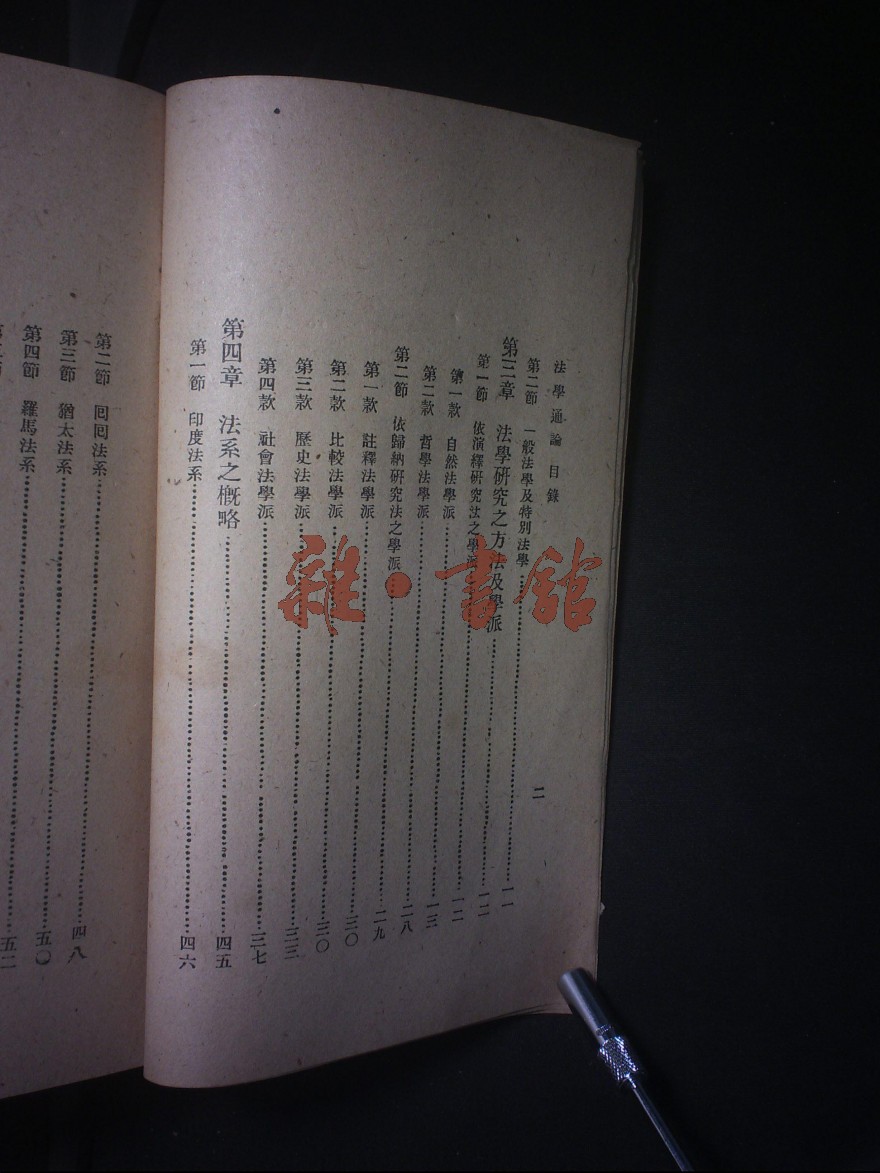 法學通論 目錄
二
第二節 一般法學及特別法學……一一
第三章 法學研究之方法及學派……一二
第一節 依演繹研究法之學派……一二
第一款 自然法學派……一二
第二款 哲學法學派……一三
第二節 依歸納研究法之學派……二八
第一款 註釋法學派……二九
第二款 比較法學派……三〇
第三款 歷史法學派……三三
第四款 社會法學派……三七
第四章 法系之概略……四五
第一節 印度法系……四六
第二節 囘囘法系……四八
第三節 猶太法系……五〇
第四節 羅馬法系……五二
雜·書舘